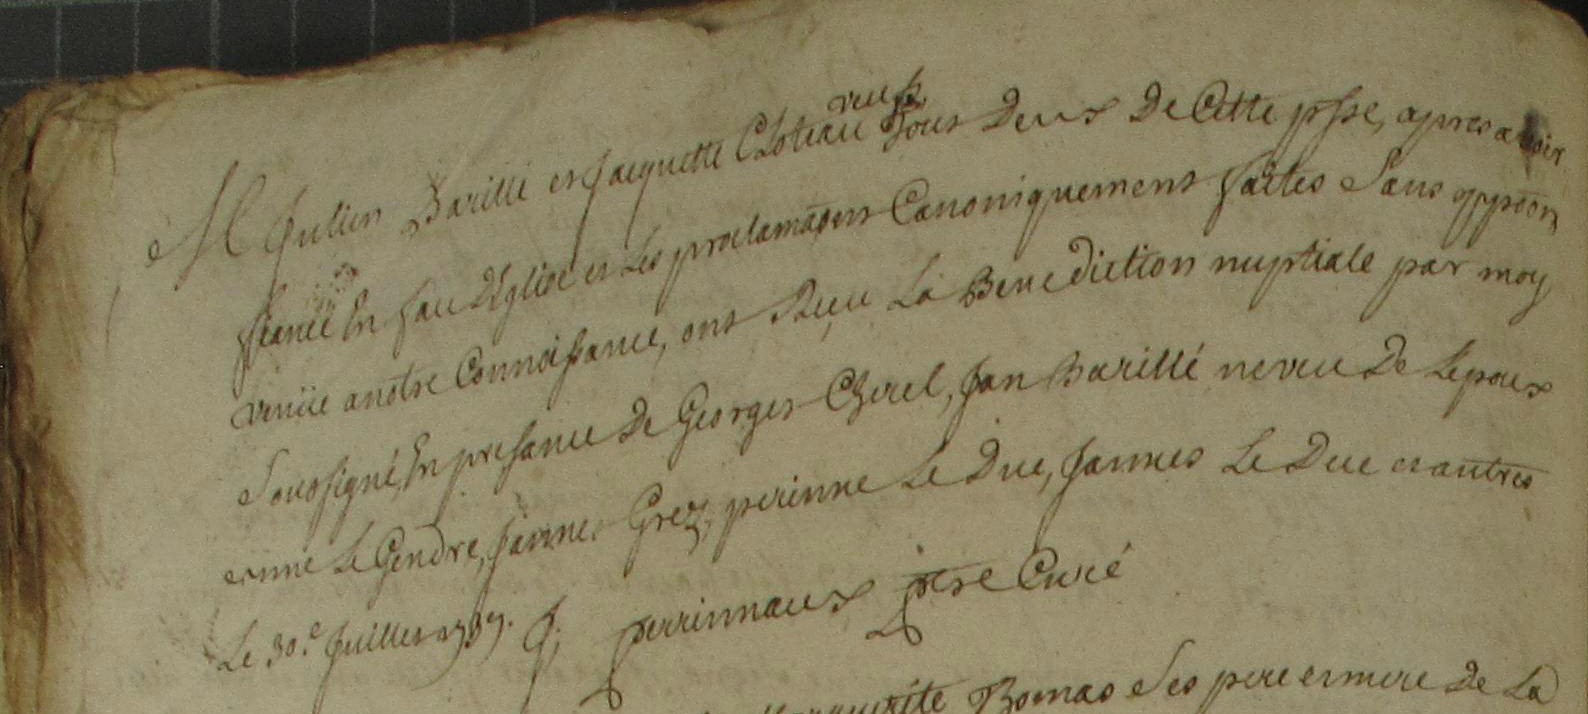 veufs
M Jullien Barillé et Jacquette Choteau Tous Deux De Cette psse, apres avoir
fiancé En face d'Eglise et Les proclamaons Canoniquement faites Sans oppoon
venüe a notre Connoissance, ont Reçu La Benediction nuptiale par moy
Soussigné, En presance de Georges Cherel, Jan Barillé neveu De Lepoux
anne Le Gendre, Jannes Grez, perinne Le Duc, Jannes Le Duc et autres
Le 30.e Juillet 1737. J. perrinnaux ptre Curé
Bomas Ses pere et mere De La